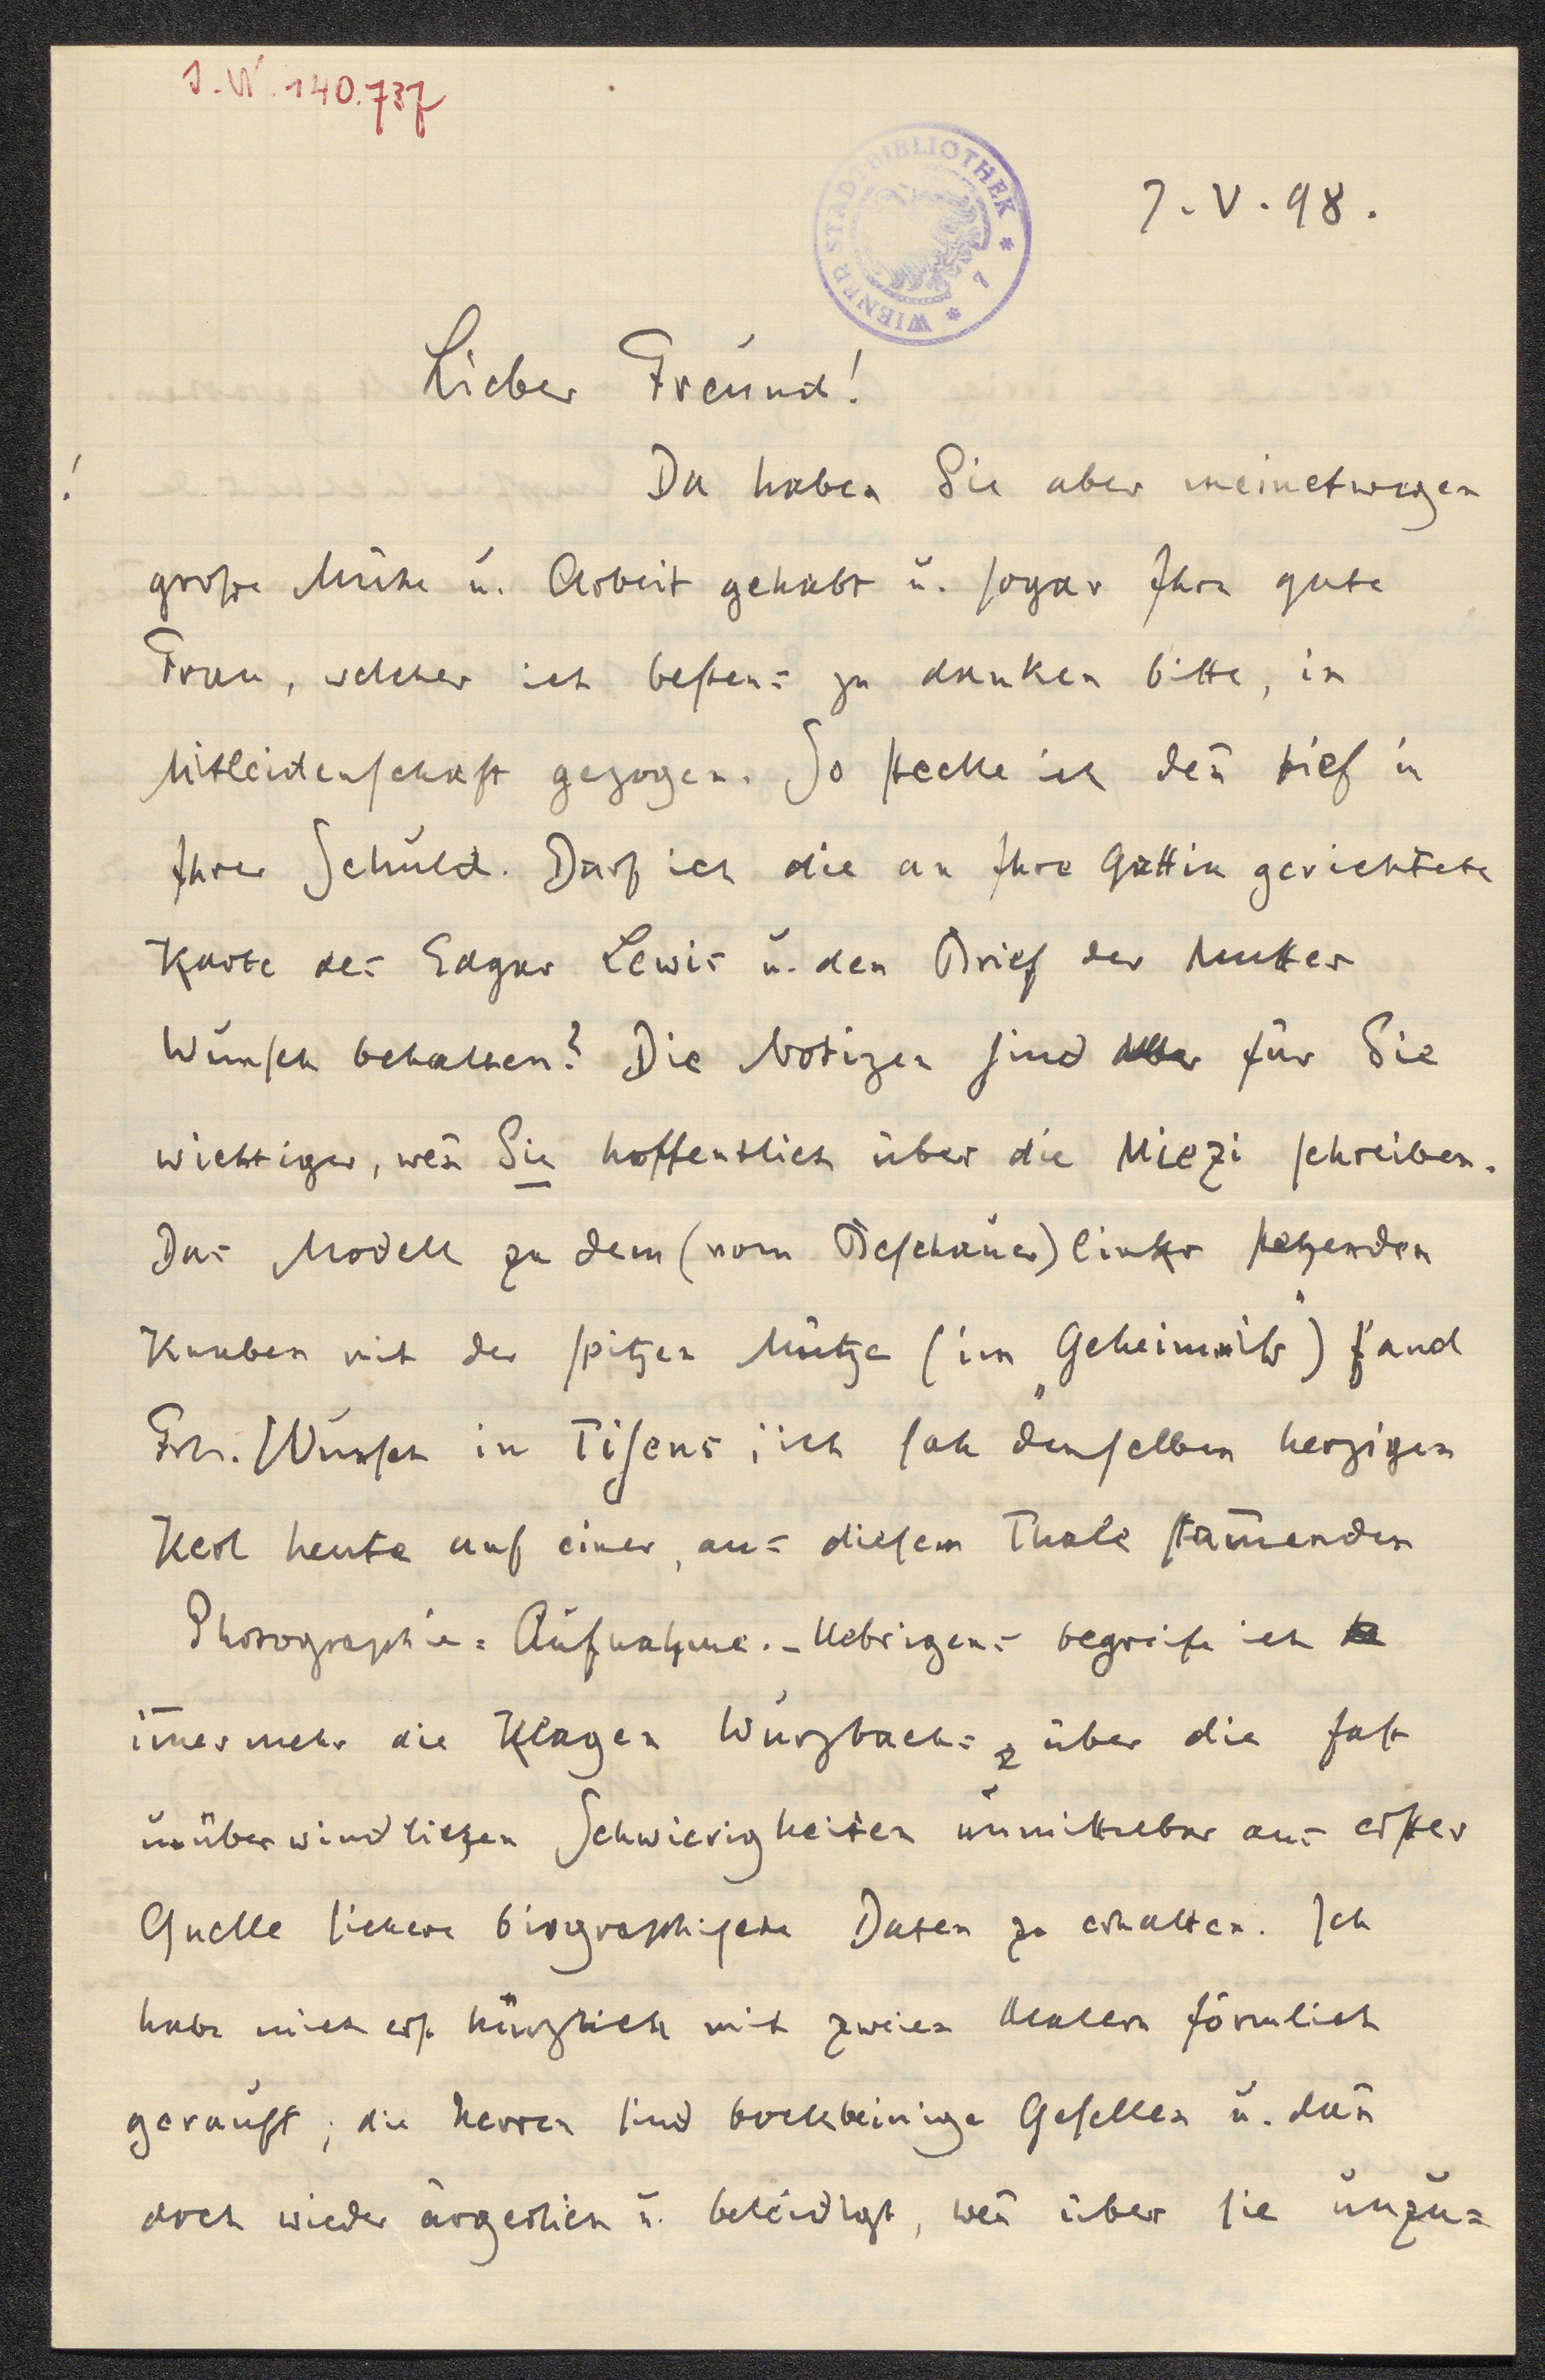 J. N. 140.737
WIENER STADTBIBLIOTHEK * 7 *
7. V. 98.
Lieber Freund!
! Da haben Sie aber meinetwegen
große Mühe u. Arbeit gehabt u. sogar Ihre gute
Frau, welcher ich bestens zu danken bitte, in
Mitleidenschaft gezogen. So stecke ich deñ tief in
Ihrer Schuld. Darf ich die an Ihre Gattin gerichtete
Karte des Edgar Lewis u. den Brief der Mutter
Wunsch behalten? Die Notizen sind aber für Sie
wichtiger, weñ Sie hoffentlich über die Miezi schreiben.
Das Modell zu dem (vom Beschauer) links stehenden
Knaben mit der spitzen Mütze (im „Geheimniß“) fand
Frl. Wunsch in Tisens; ich sah denselben herzigen
Kerl heute auf einer, aus diesem Thale stam̅enden
Photographie-Aufnahme. – Uebrigens begreife ich
im̅er mehr die Klagen Wurzbachs über die fast
unüberwindlichen Schwierigkeiten unmittelbar aus erster
Quelle sichere biographische Daten zu erhalten. Ich
habe mich erst kürzlich mit zweien Malern förmlich
gerauft; die Herren sind bockbeinige Gesellen u. dañ
doch wieder ärgerlich u. beleidigt, weñ über sie unzu=